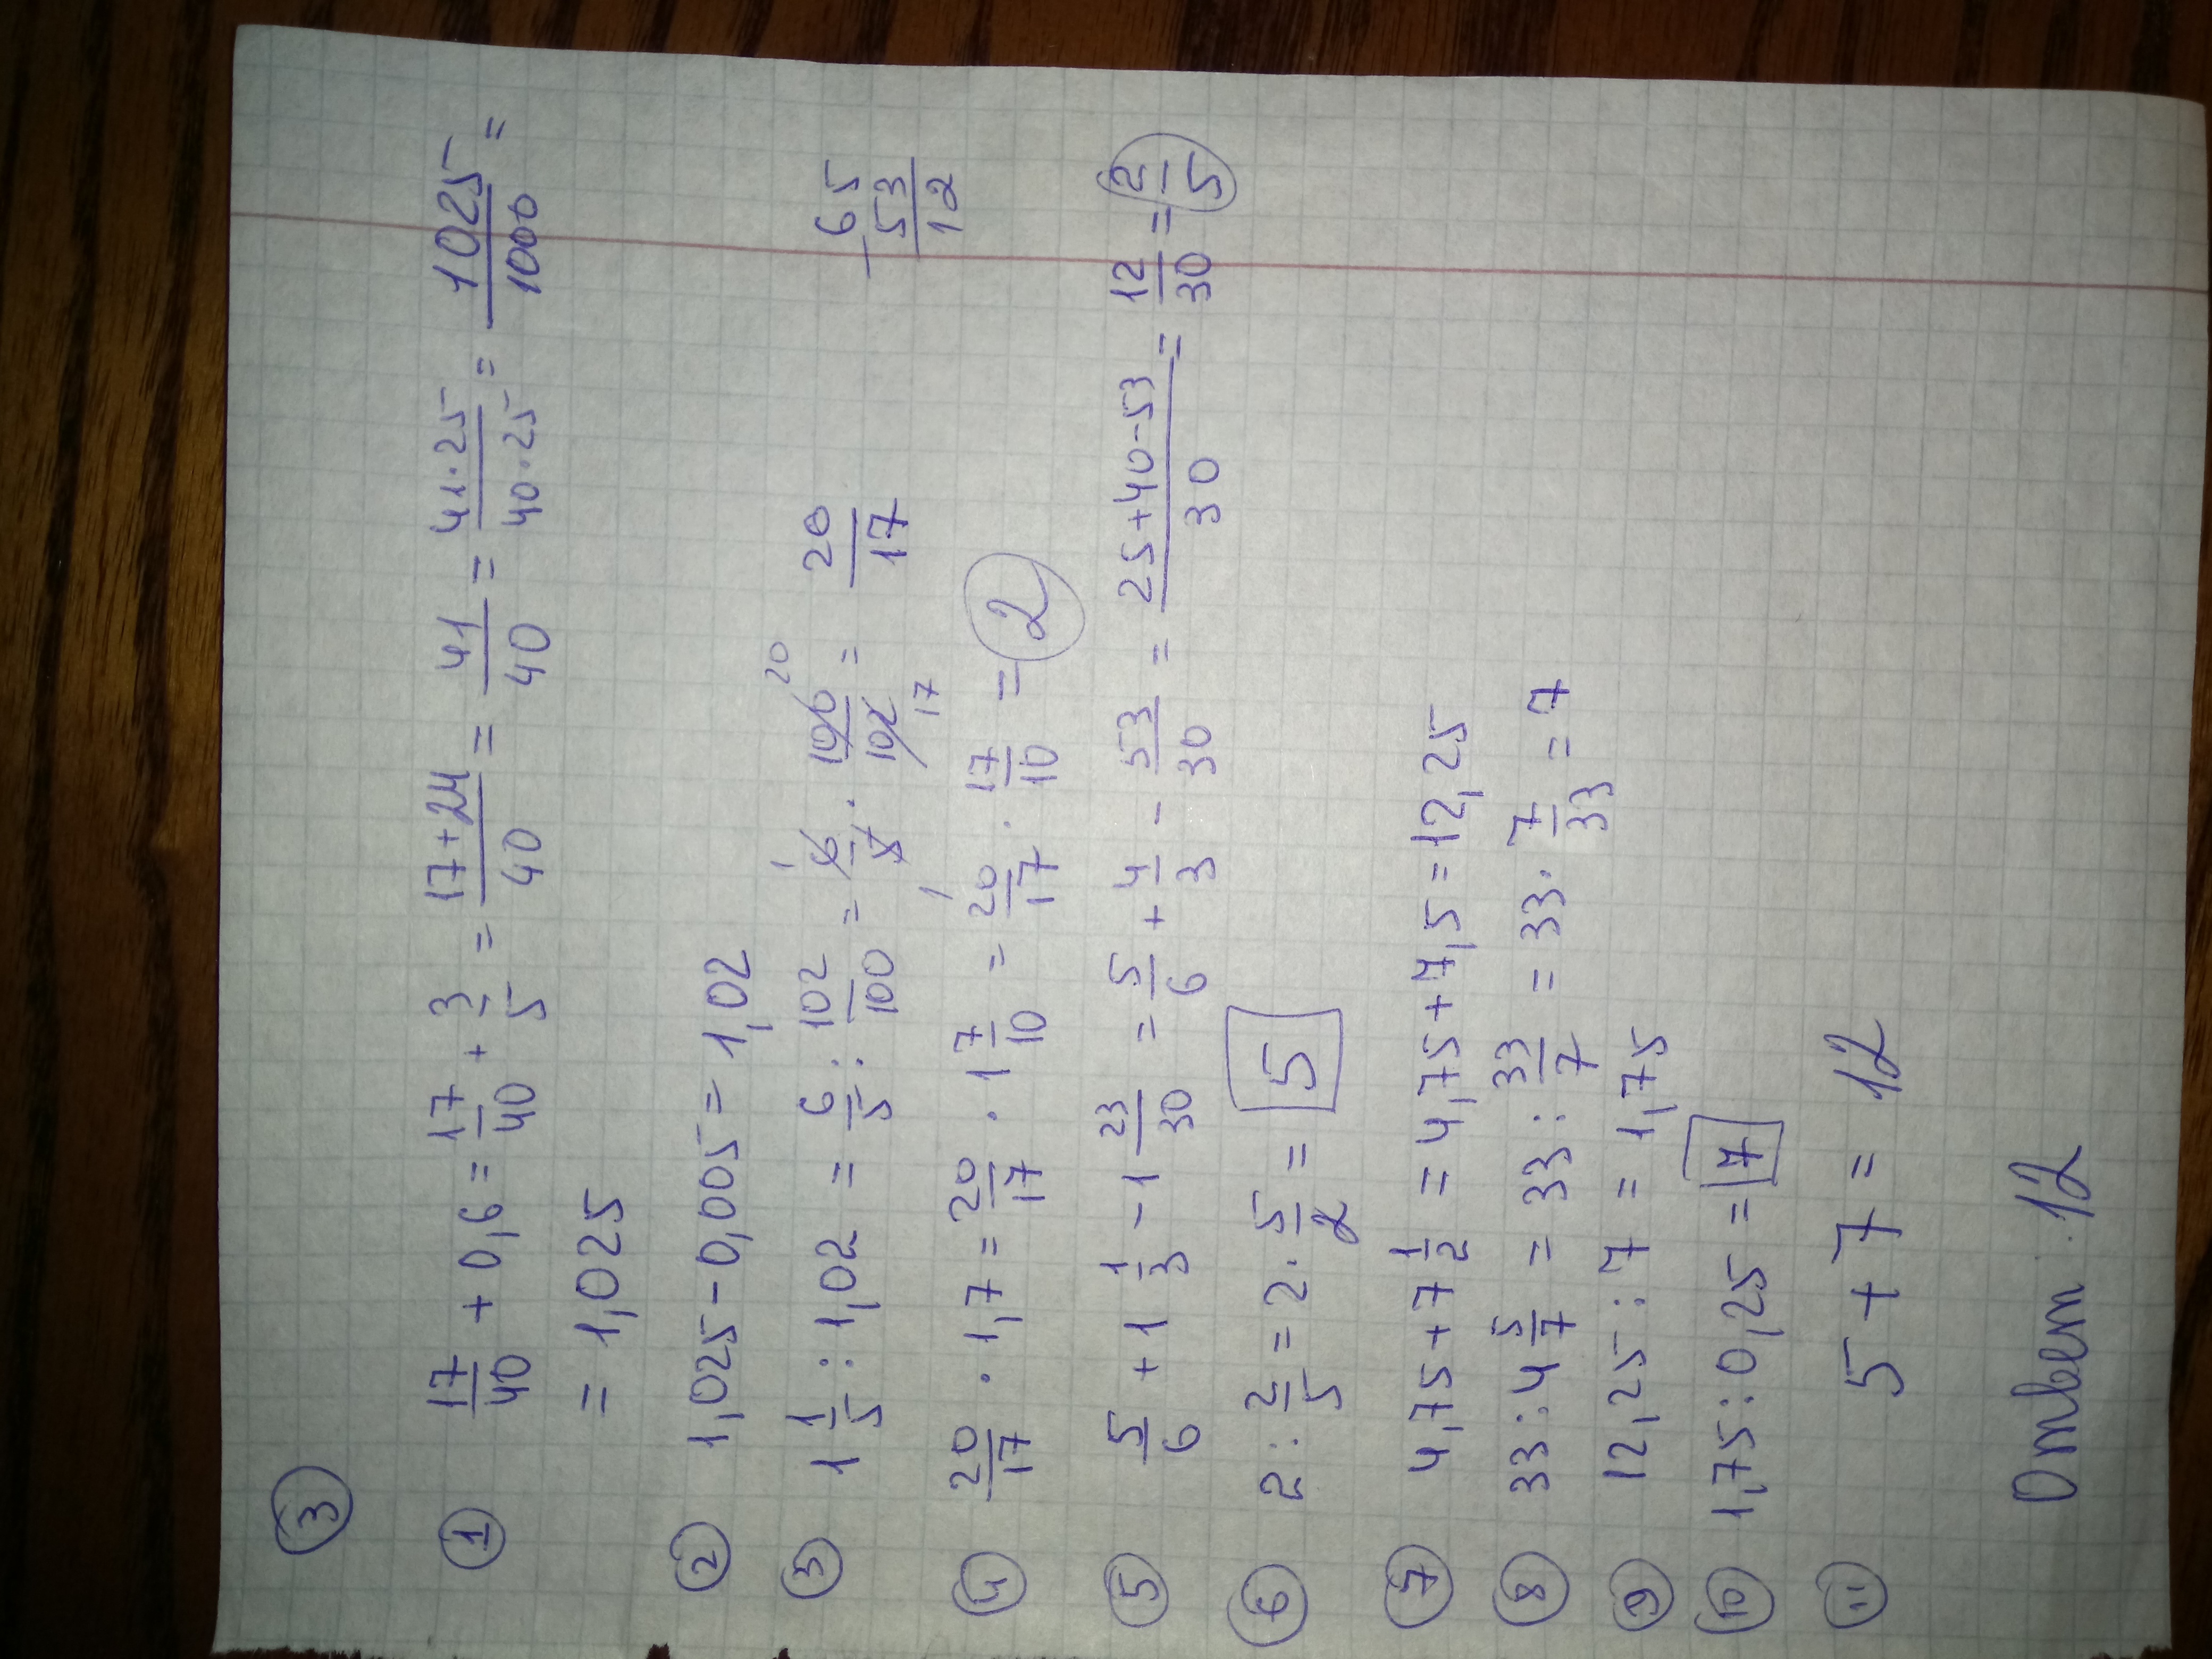 ③
① 17/40 + 0,6 = 17/40 + 3/5 = (17+24)/40 = 41/40 = (41·25)/(40·25) = 1025/1000 =
= 1,025
② 1,025 - 0,005 = 1,02
③ 1 1/5 : 1,02 = 6/5 : 102/100 = 6/5 · 100/102 = 20/17
1 20
17
-65
53
12
④ 20/17 · 1,7 = 20/17 · 1 7/10 = 20/17 · 17/10 = 2
⑤ 5/6 + 1 1/3 - 1 23/30 = 5/6 + 4/3 - 53/30 = (25+40-53)/30 = 12/30 = 2/5
⑥ 2 : 2/5 = 2 · 5/2 = 5
⑦ 4,75 + 7 1/2 = 4,75 + 7,5 = 12,25
⑧ 33 : 4 5/7 = 33 : 33/7 = 33 · 7/33 = 7
⑨ 12,25 : 7 = 1,75
⑩ 1,75 : 0,25 = 7
⑪ 5 + 7 = 12
Ответ: 12